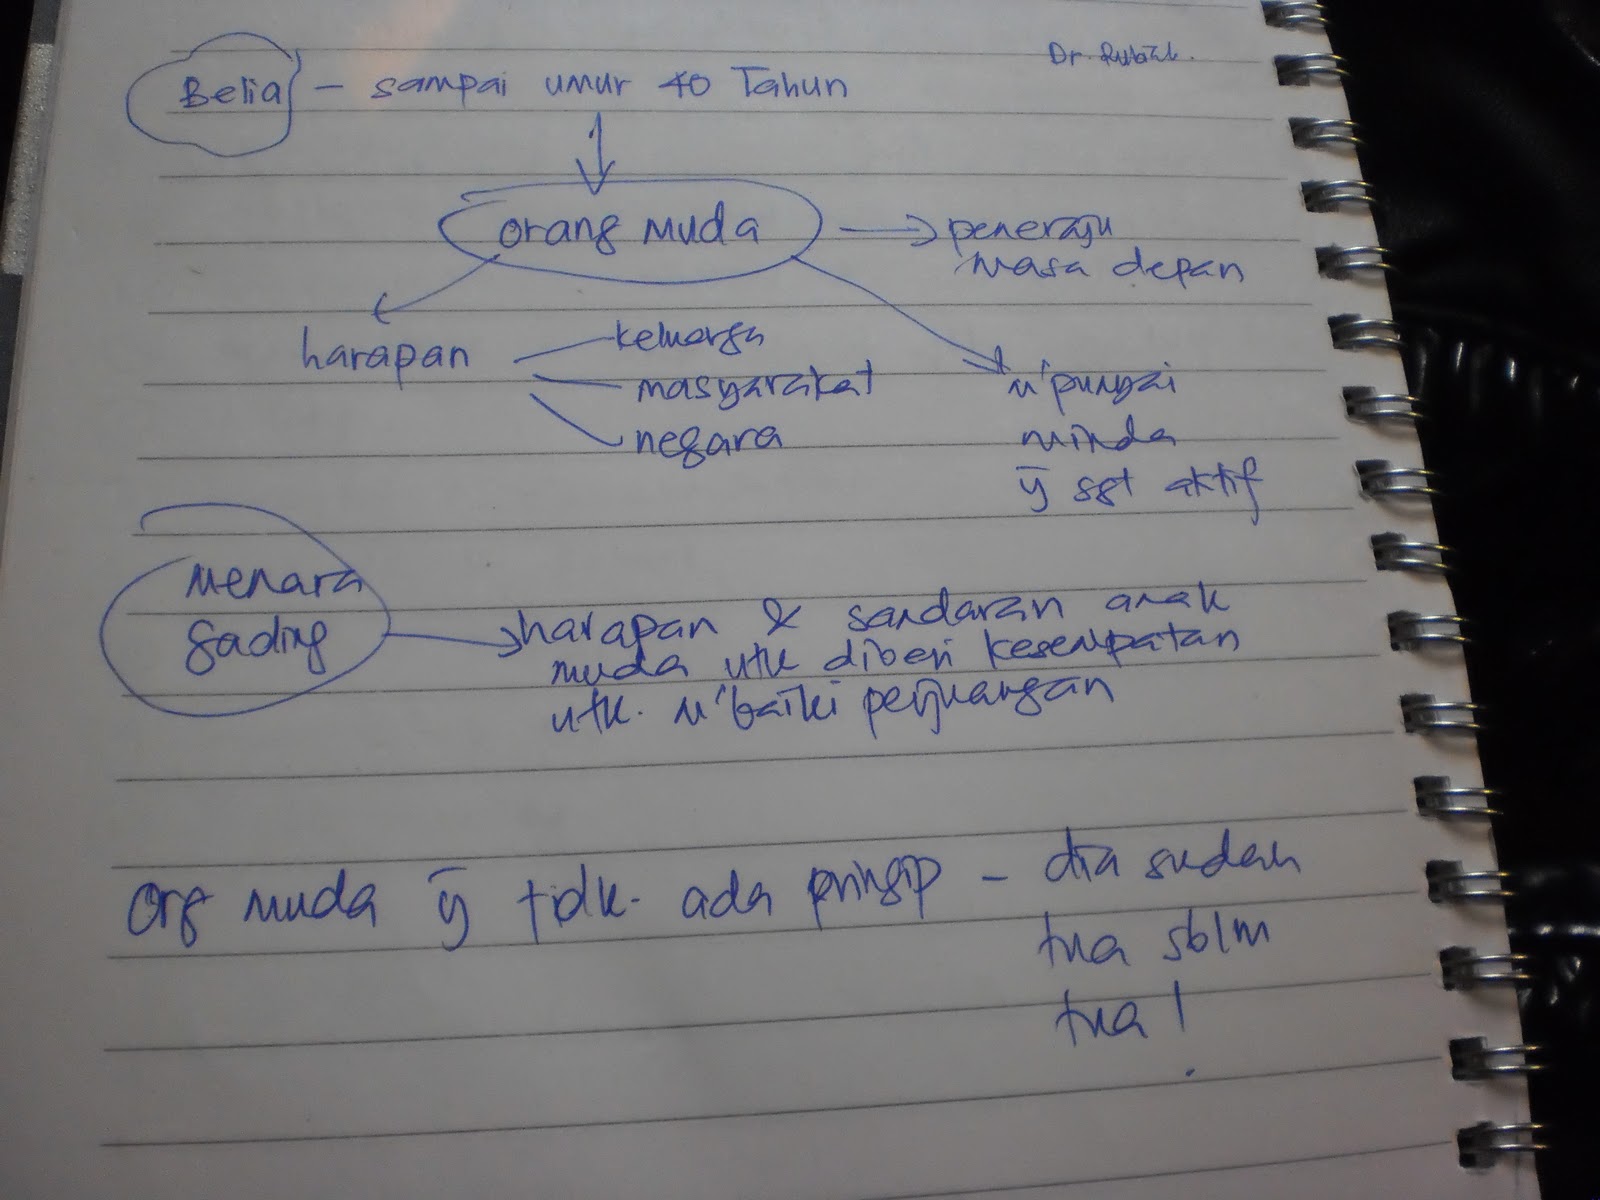 Dr.
Belia - sampai umur 40 Tahun
orang muda
peneraju
masa depan
harapan
keluarga
masyarakat
negara
m'punyai
minda
yg sgt aktif
menara
gading
harapan & sandaran anak
muda utk diberi kesempatan
utk. m'baiki perjuangan
org muda yg tidk. ada prinsip - dia sudah
tua sblm
tua!